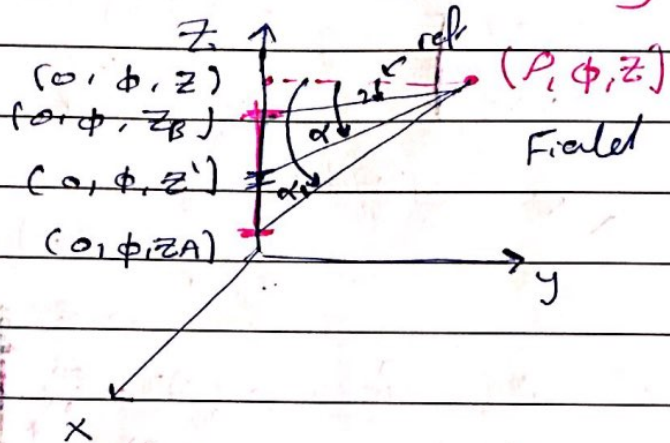 Z
ref.
(0, φ, Z)
(ρ, φ, Z)
(0, φ, ZB)
α
Fialet
(0, φ, Z')
α1
(0, φ, ZA)
y
x